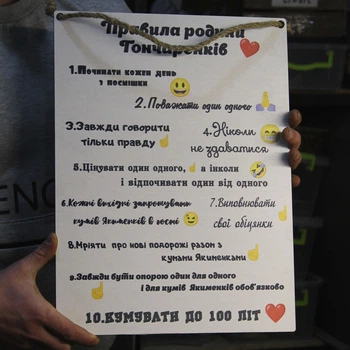 Правила родини
Гончаренків
1.Починати кожен день
з посмішки
2.Поважати один одного
3.Завжди говорити
тільки правду
4.Ніколи
не здаватися
5.Цінувати один одного, а інколи
і відпочивати один від одного
6.Кожні вихідні запрошувати
кумів Якименків в гості
7.Виконувати
свої обіцянки
8.Мріяти про нові подорожі разом з
кумами Якименками
9.Завжди бути опорою один для одного
і для кумів Якименків обов'язково
10.КУМУВАТИ ДО 100 ЛІТ